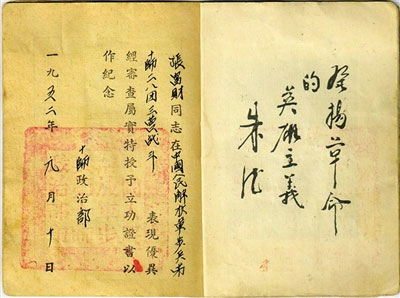 發揚革命
的
英雄主義
朱德
張富財同志在中國人民解放軍步兵第
十師二八團三營战斗 表現優異
經審查屬實特授予立功證書以
作紀念
十師政治部
一九五二年九月十日